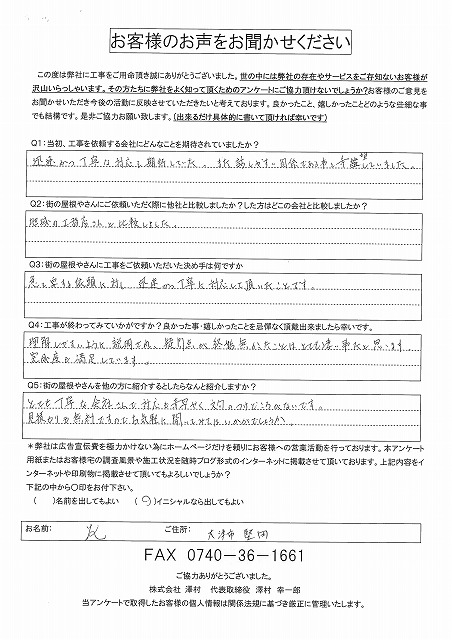 お客様のお声をお聞かせください
この度は弊社に工事をご用命頂き誠にありがとうございました。世の中には弊社の存在やサービスをご存知ないお客様が
沢山いらっしゃいます。その方たちに弊社をよく知って頂くためのアンケートにご協力頂けないでしょうか?お客様のご意見を
お聞かせいただき今後の活動に反映させていただきたいと考えております。良かったこと、嬉しかったことどのような些細な事
でも結構です。是非ご協力お願い致します。(出来るだけ具体的に書いて頂ければ幸いです)
Q1:当初、工事を依頼する会社にどんなことを期待されていましたか?
迅速かつ丁寧な対応を期待していた。また話しやすい関係である事も希望していました。
Q2:街の屋根やさんにご依頼いただく際に他社と比較しましたか?した方はどこの会社と比較しましたか?
地域の工務店さんと比較しました。
Q3:街の屋根やさんに工事をご依頼いただいた決め手は何ですか
迅速かつ丁寧に対応して頂いたことです。
Q4:工事が終わってみていかがですか?良かった事・嬉しかったことを忌憚なく頂戴出来ましたら幸いです。
理解しやすいように説明され、疑問点が終始無かったことはとても凄い事だと思います
完成度に満足しています。
Q5:街の屋根やさんを他の方に紹介するとしたらなんと紹介しますか?
とても丁寧な会社さんで対応も手早く文句のつけどころがないです。
見積りは無料ですので気軽に聞いてみてはいかがでしょうか。
*弊社は広告宣伝費を極力かけない為にホームページだけを頼りにお客様への営業活動を行っております。本アンケート
用紙またはお客様宅の調査風景や施工状況を随時ブログ形式のインターネットに掲載させて頂いております。上記内容をイ
ンターネットや印刷物に掲載させて頂いてもよろしいでしょうか?
下記の中から〇印をお付下さい。
( )名前を出してもよい (〇)イニシャルなら出してもよい
お名前: ご住所: 大津市 堅田
FAX 0740-36-1661
ご協力ありがとうございました。
株式会社 澤村 代表取締役 澤村 幸一郎
当アンケートで取得したお客様の個人情報は関係法規に基づき厳正に管理いたします。